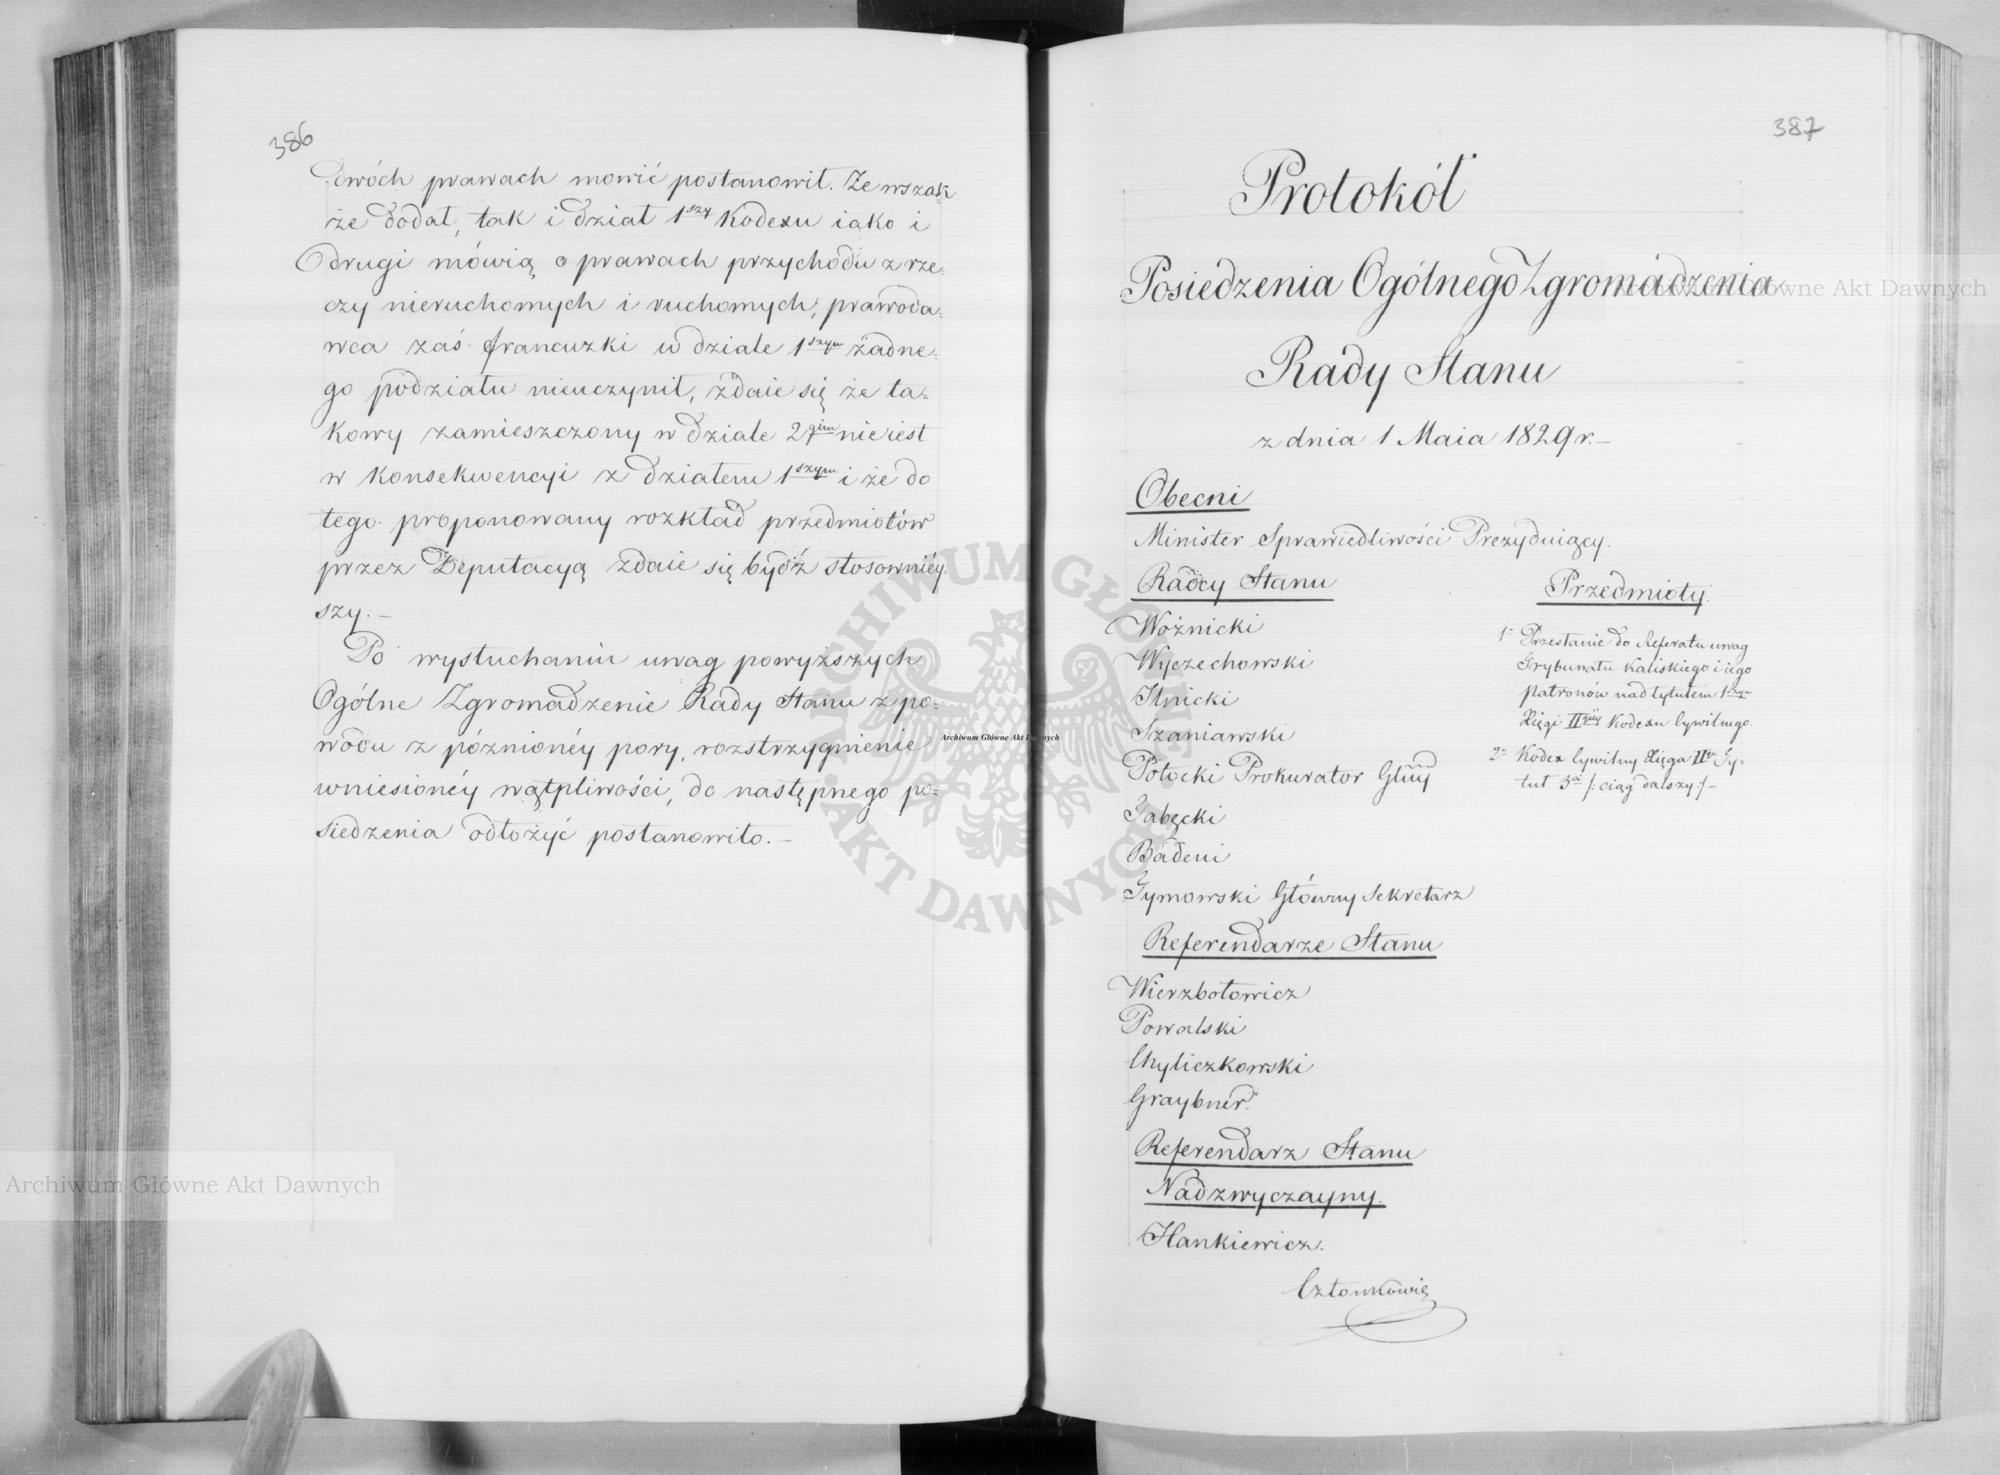 386
dwóch prawach mowić postanowił. Że wszak
że dodał, tak i dział 1szy Kodexu iako i
drugi mówią o prawach przychodu z rze-
czy nieruchomych i ruchomych, prawoda-
wca zaś francuzki w dziale 1szym żadne-
go podziału nieuczynił, zdaie się że ta-
kowy zamieszczony w dziale 2gim nie iest
w konsekwencyi z działem 1szym i że do
tego proponowany rozkład przedmiotów
przez Deputacyą zdaie się bydź stosowniéy-
szy. –
Po wysłuchaniu uwag powyższych
Ogólne Zgromadzenie Rady Stanu z po-
wodu z późnionéy pory, rozstrzygnienie
wniesionéy wątpliwości, do następnego po-
siedzenia odłożyć postanowiło. –
387
Protokół
Posiedzenia Ogólnego Zgromadzenia
Rady Stanu
z dnia 1 Maia 1829 r. –
Obecni
Minister Sprawiedliwości Prezyduiący.
Radcy Stanu
Woźnicki
Wyczechowski
Ilnicki
Szaniawski
Potocki Prokurator Glny
Tabęcki
Badeni
Tymowski Główny Sekretarz
Referendarze Stanu
Wierzbołowicz
Powalski
Chyliczkowski
Graybner.
Referendarz Stanu
Nadzwyczayny.
Hankiewicz.
Członkowie
Przedmioty.
1- Przesłanie do Referatu uwag
Trybunału Kaliskiego i iego
patronów nad tytułem 1-
Xięgi IIgiéy Kodexu Cywilnego.
2- Kodex Cywilny Xięga II Ty-
tuł 3ci /: ciąg dalszy :/ –
Archiwum Główne Akt Dawnych
Archiwum Główne Akt Dawnych
Archiwum Główne Akt Dawnych
ARCHIWUM GŁÓWNE AKT DAWNYCH